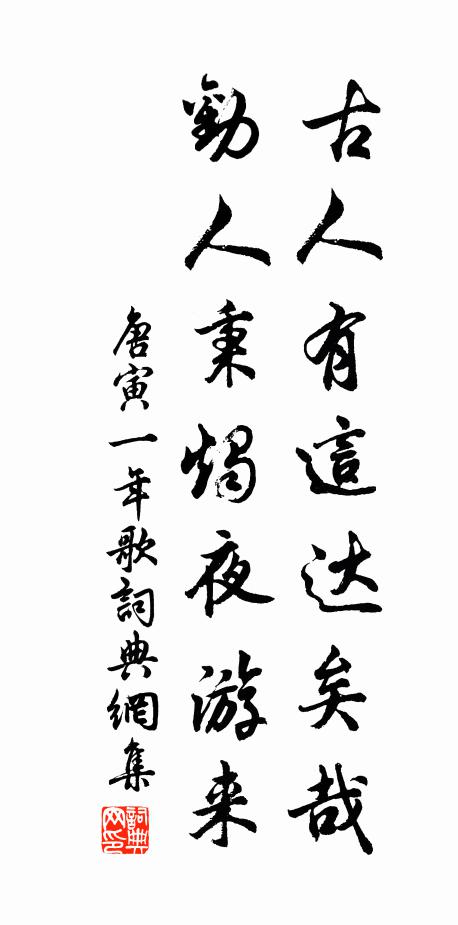 古人有這达矣哉
勸人秉燭夜游来
唐寅一年歌詞典網集
詞典网印